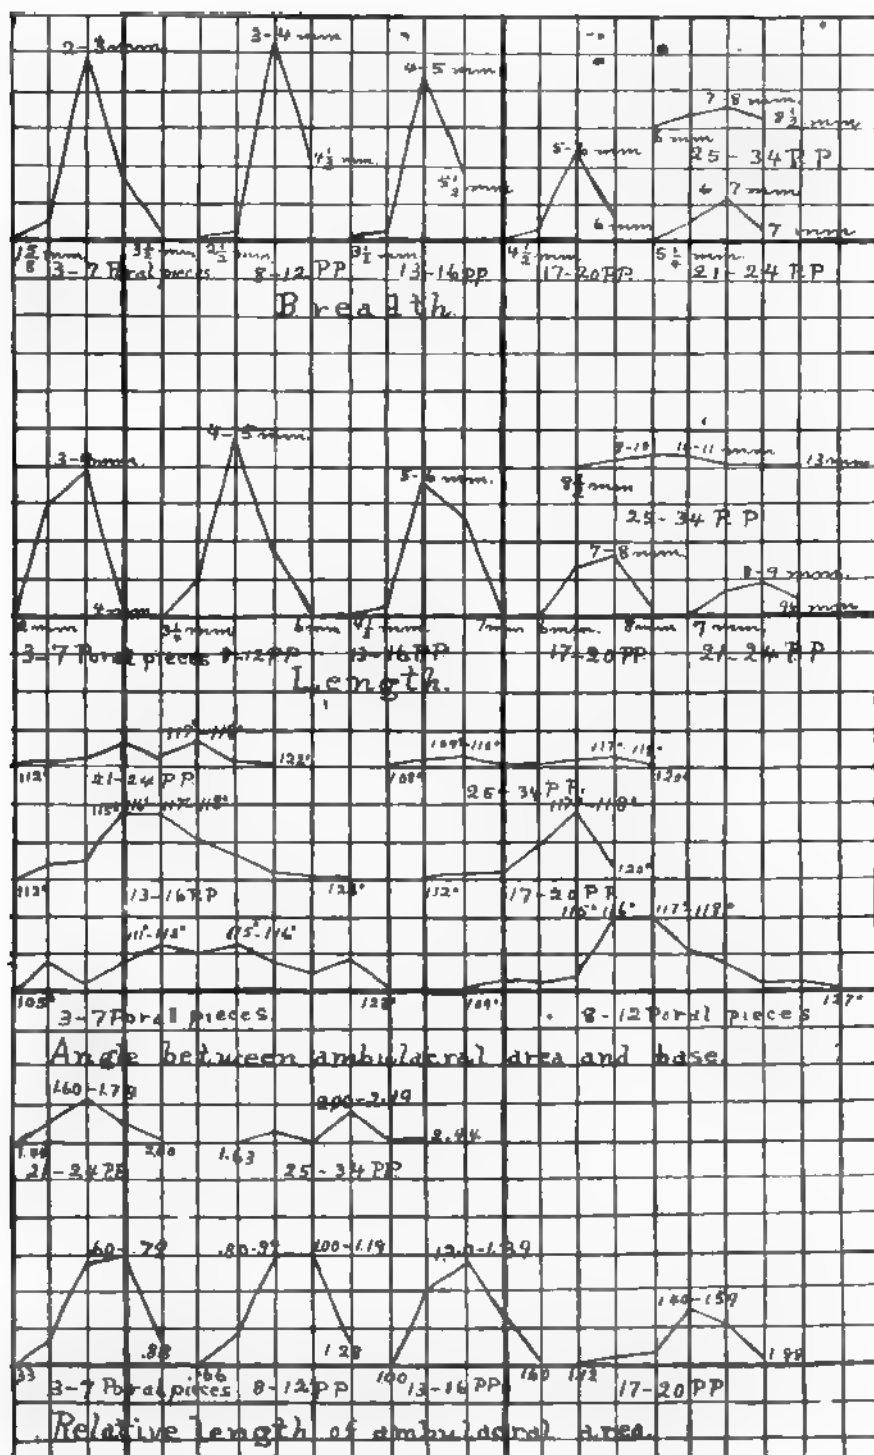 2-3mm. 3-4 mm 4-5 mm 7-8 mm. 8½ mm
4½ mm. 5½ mm 5-6 mm 6 mm 25-34 P.P
6 7 mm 6 mm 7 mm
1⅝ mm 3½ mm 2½ mm. 3½ mm 4½ mm 5¼ mm.
3-7 Poral pieces 8-12 PP 13-16 PP 17-20 PP. 21-24 P.P
Breadth.
3-4 mm. 4-5 mm. 5-6 mm. 9-10 10-11 mm 13 mm
8½ mm
25-34 P.P
7-8 mm 8-9 mm.
4 mm
2 mm 3¼ mm 6 mm 4½ mm 7 mm 6 mm. 8 mm 7 mm.
3-7 Poral pieces 8-12 PP 13-16 PP 17-20 PP 21-24 P.P
Length.
117°-118° 109°-110° 117°-118°
112° 122° 108° 120°
21-24 PP 25-34 P.P.
115° 116° 117°-118° 117°-118°
112° 112° 120°
13-16 P.P 17-20 P.P
111°-112° 115°-116° 115° 116° 117°-118°
105° 109° 127°
3-7 Poral pieces. 8-12 Poral pieces
Angle between ambulacral area and base.
1.60-1.79 2.00-2.19
2.00 1.63 2.44
21-24 PP 25-34 PP
.60-.79 .80-.99 1.00-1.19 1.20-1.39
1.40-1.59
.88 1.28 1.88
.33 .66 1.00 1.60 1.12
3-7 Poral pieces 8-12 PP 13-16 PP 17-20 PP
Relative length of ambulacral area.